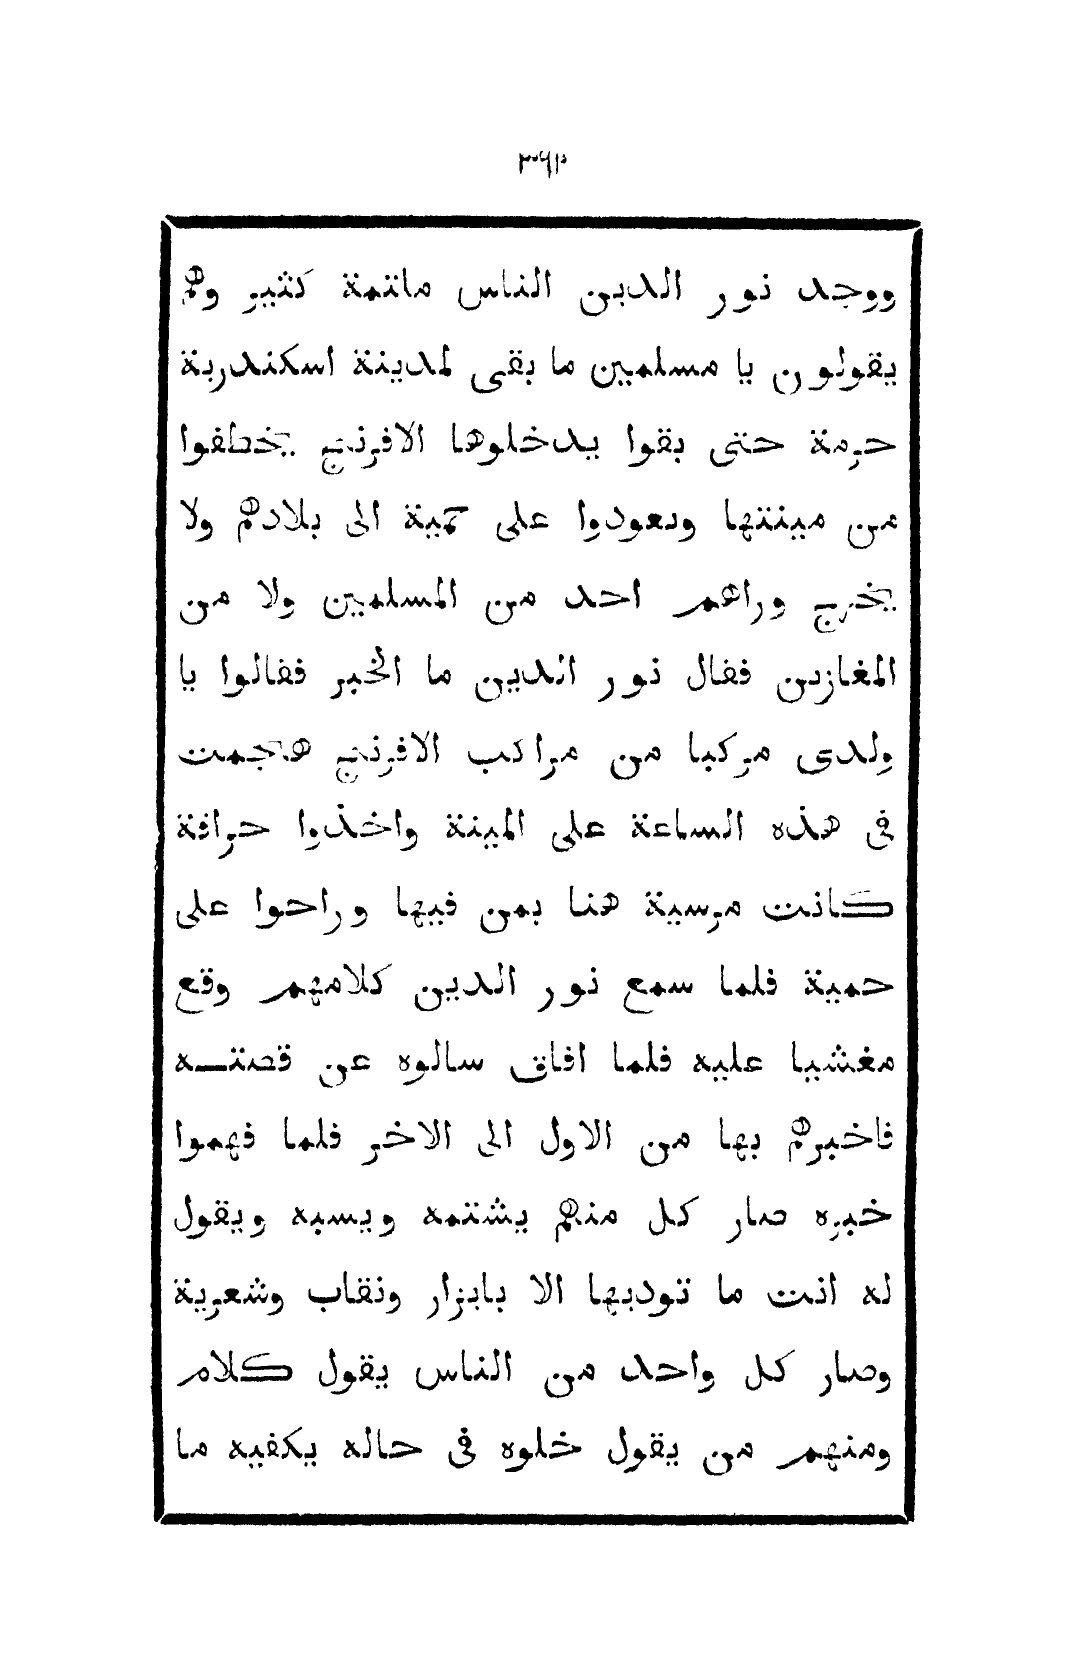 ٣٦٢
ووجد نور الدين الناس ملتمة كثير وهم
يقولون يا مسلمين ما بقى لمدينة اسكندرية
حرمة حتى بقوا يدخلوها الافرنج يخطفوا
من مينتها ويعودوا على حمية الى بلادهم ولا
يخرج وراهم احد من المسلمين ولا من
المغازين فقال نور الدين ما الخبر فقالوا يا
ولدى مركبا من مراكب الافرنج هجمت
فى هذه الساعة على المينة واخذوا حراقة
كانت مرسية هنا بمن فيها وراحوا على
حمية فلما سمع نور الدين كلامهم وقع
مغشيا عليه فلما افاق سالوه عن قصته
فاخبرهم بها من الاول الى الاخر فلما فهموا
خبره صار كل منهم يشتمه ويسبه ويقول
له انت ما توديها الا بابزار ونقاب وشعرية
وصار كل واحد من الناس يقول كلام
ومنهم من يقول خلوه فى حاله يكفيه ما